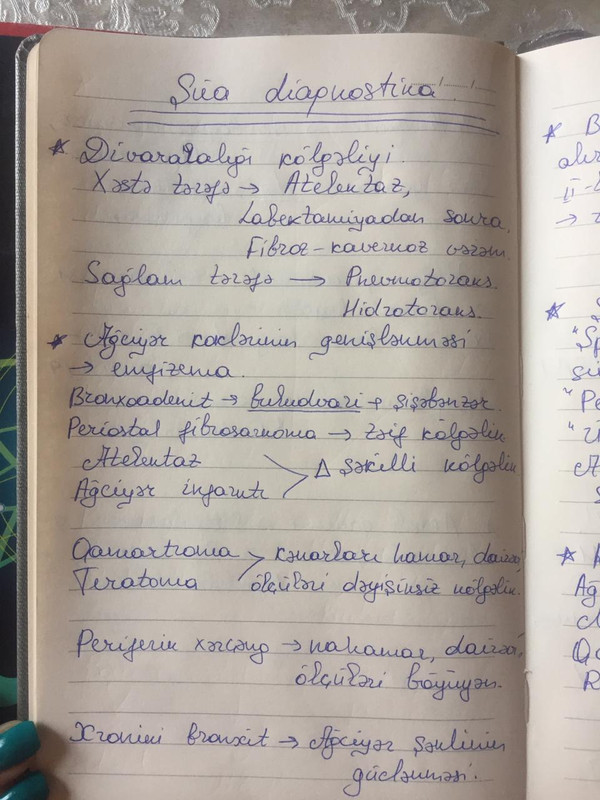 Şüa diaqnostika
* Divaralığı kölgəliyi.
Xəstə tərəfə → Atelektaz,
Lobektamiyadan sonra,
Fibroz-kavernoz vərəm.
Sağlam tərəfə → Pnevmotoraks.
Hidrotoraks.
* Ağciyər köklərinin genişlənməsi
→ emfizema.
Bronxoadenit → buludvari + şişəbənzər.
Periostal fibrosarkoma → zəif kölgəlik
Atelektaz
Ağciyər infarktı > Δ şəkilli kölgəlik
Qamartroma > kənarları hamar, dairəvi,
Teratoma ölçüləri dəyişinsiz kölgəlik.
Periferik xərçəng → nahamar, dairəvi,
ölçüləri böyüyən.
Xroniki bronxit → Ağciyər şəklinin
güclənməsi.
* B
II-
→
*
"Sp
"Pe
*
Ağ